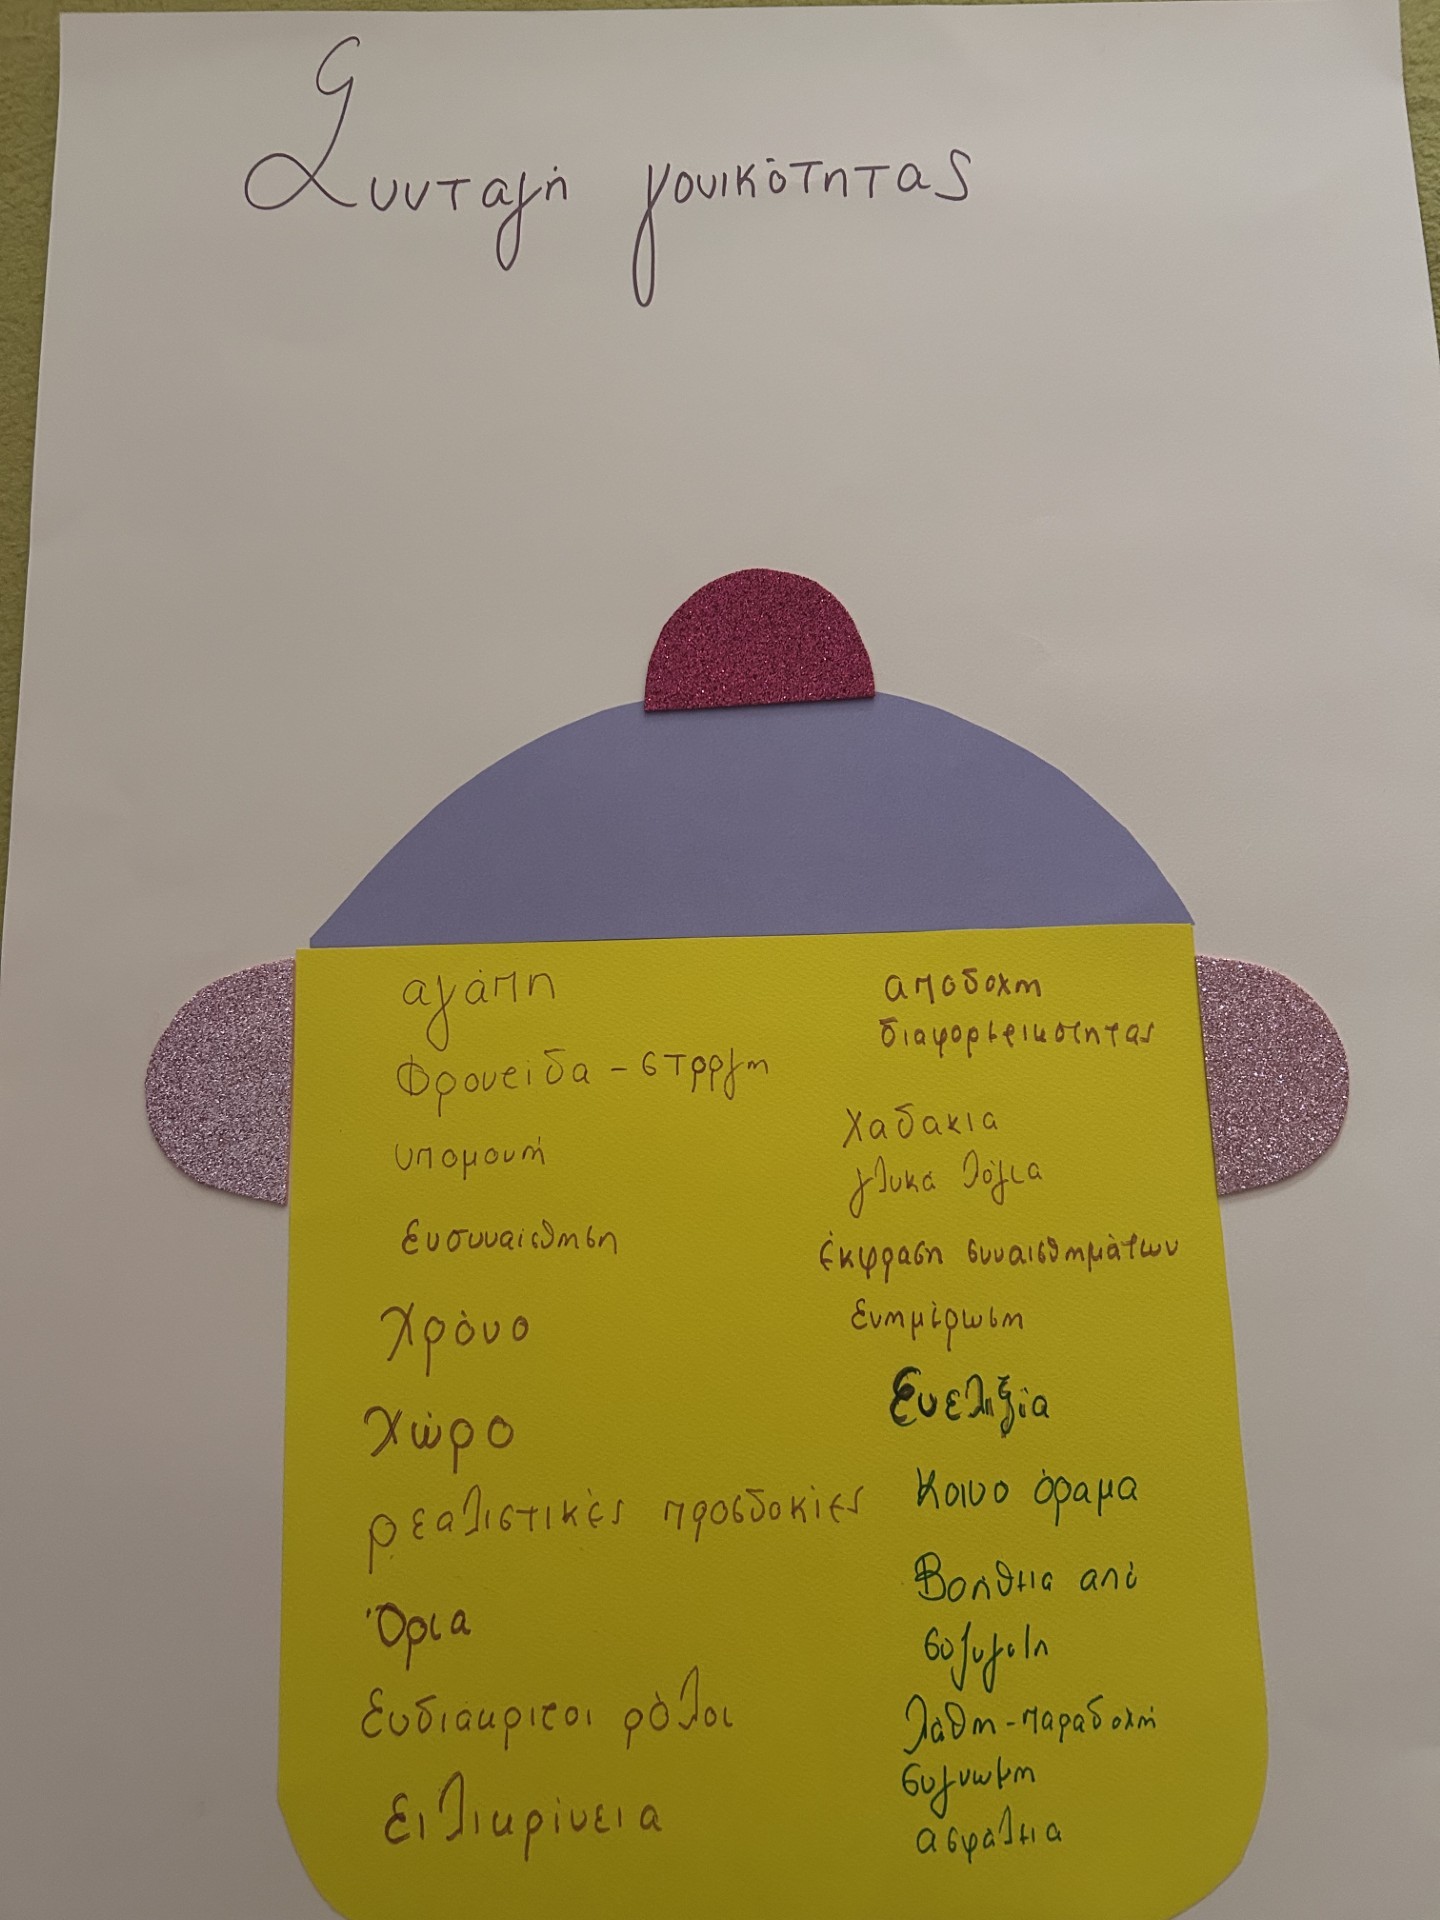 Συνταγή γονικότητας
αγάπη
Φροντίδα - στοργή
υπομονή
Ενσυναίσθηση
Χρόνο
Χώρο
ρεαλιστικές προσδοκίες
Όρια
Ευδιάκριτοι ρόλοι
ειλικρίνεια
αποδοχή
διαφορετικότητας
χαδάκια
γλυκά λόγια
έκφραση συναισθημάτων
ενημέρωση
Ευελιξία
Κοινο όραμα
Βοήθεια από
λάθη - παραδοχή
συγνώμη
ασφάλεια